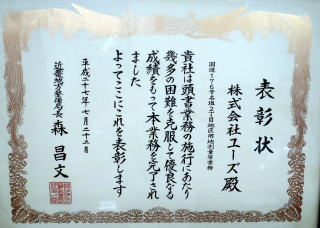 表彰状
国道176号名塩2丁目地区用地測量等業務
株式会社ユーズ殿
貴社は頭書業務の施行にあたり
幾多の困難を克服して優良なる
成績をもって本業務を完了され
ました
よってここにこれを表彰します
平成二十七年七月二十三日
近畿地方整備局長 森昌文